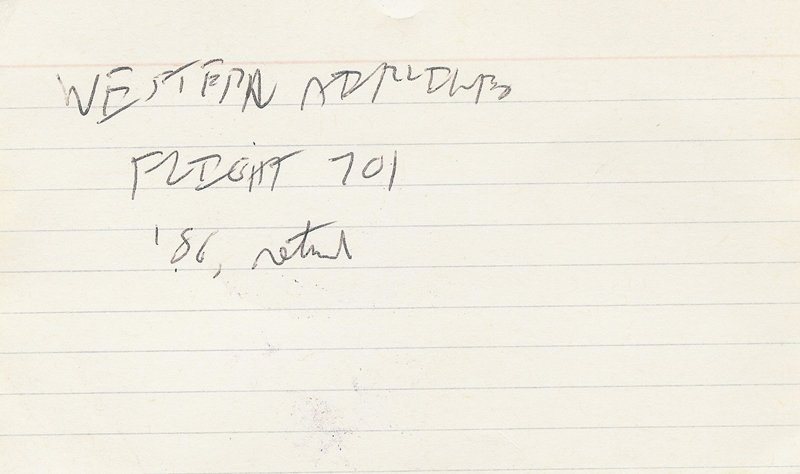 WESTERN AIRLINES
FLIGHT 701
'86,